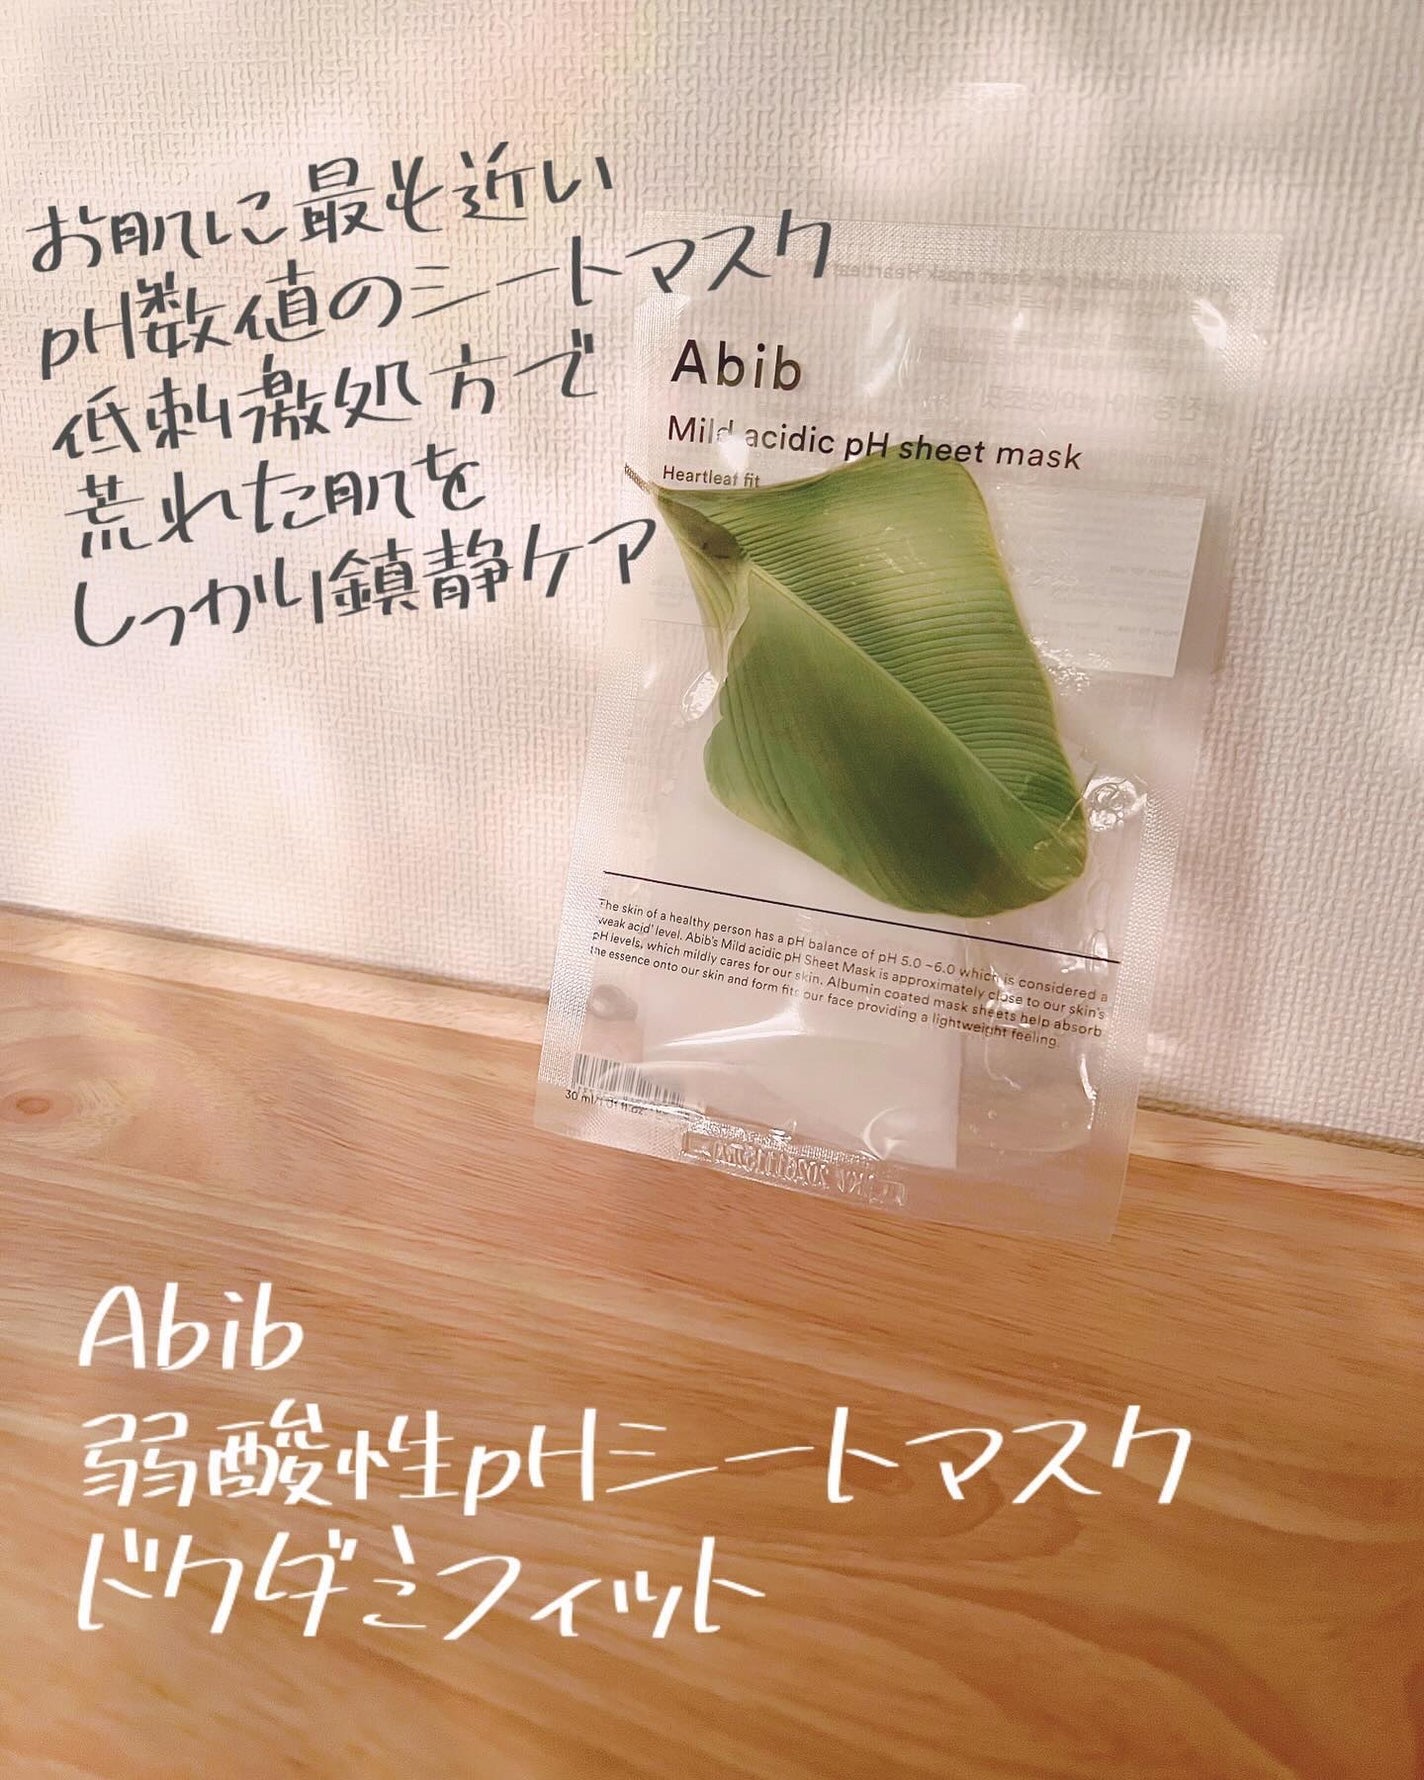 お肌に最も近い
pH数値のシートマスク
低刺激処方で
荒れた肌を
しっかり鎮静ケア
Abib
Mild acidic pH sheet mask
Heartleaf fit
The skin of a healthy person has a pH balance of pH 5.0 ~6.0 which is considered a
'weak acid' level. Abib's Mild acidic pH Sheet Mask is approximately close to our skin's
pH levels, which mildly cares for our skin. Albumin coated mask sheets help absorb
the essence onto our skin and form fits our face providing a lightweight feeling.
30 ml/1.01 fl.oz
Abib
弱酸性pHシートマスク
ドクダミフィット